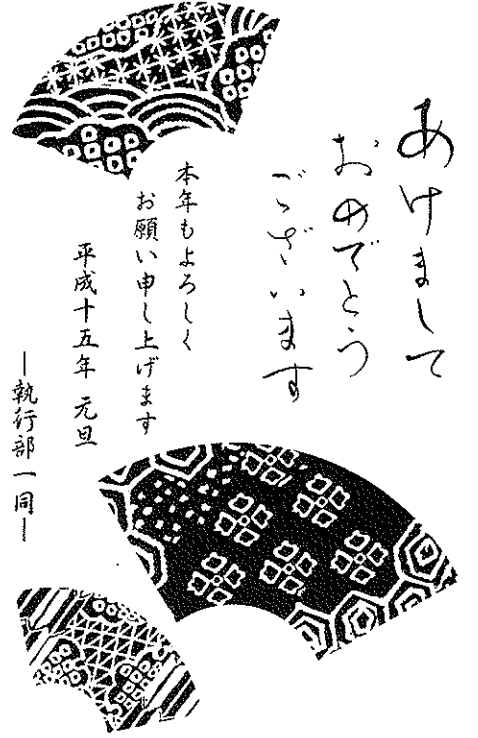 あけまして
おめでとう
ございます
本年もよろしく
お願い申し上げます
平成十五年 元旦
―執行部一同―